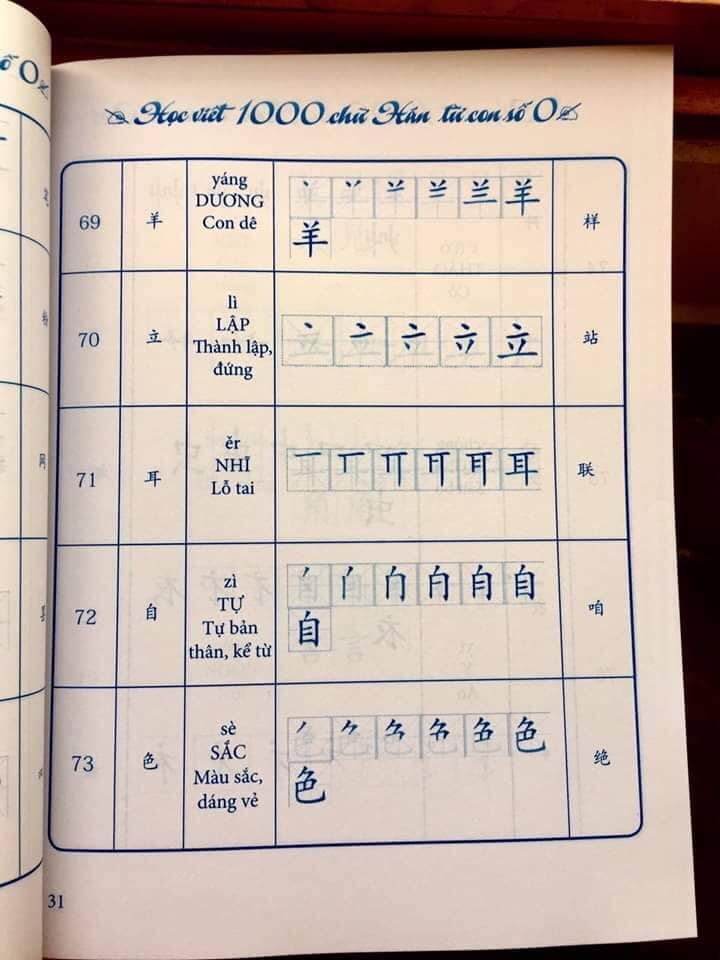 Học viết 1000 chữ Hán từ con số 0
69
羊
yáng
DƯƠNG
Con dê
丶 丷 䒑 兰 羊
羊
样
70
立
lì
LẬP
Thành lập,
đứng
丶 亠 立
站
71
耳
ěr
NHĨ
Lỗ tai
一 丅 耳
联
72
自
zì
TỰ
Tự bản
thân, kể từ
丿 自
自
咱
73
色
sè
SẮC
Màu sắc,
dáng vẻ
丿 色
色
绝
31